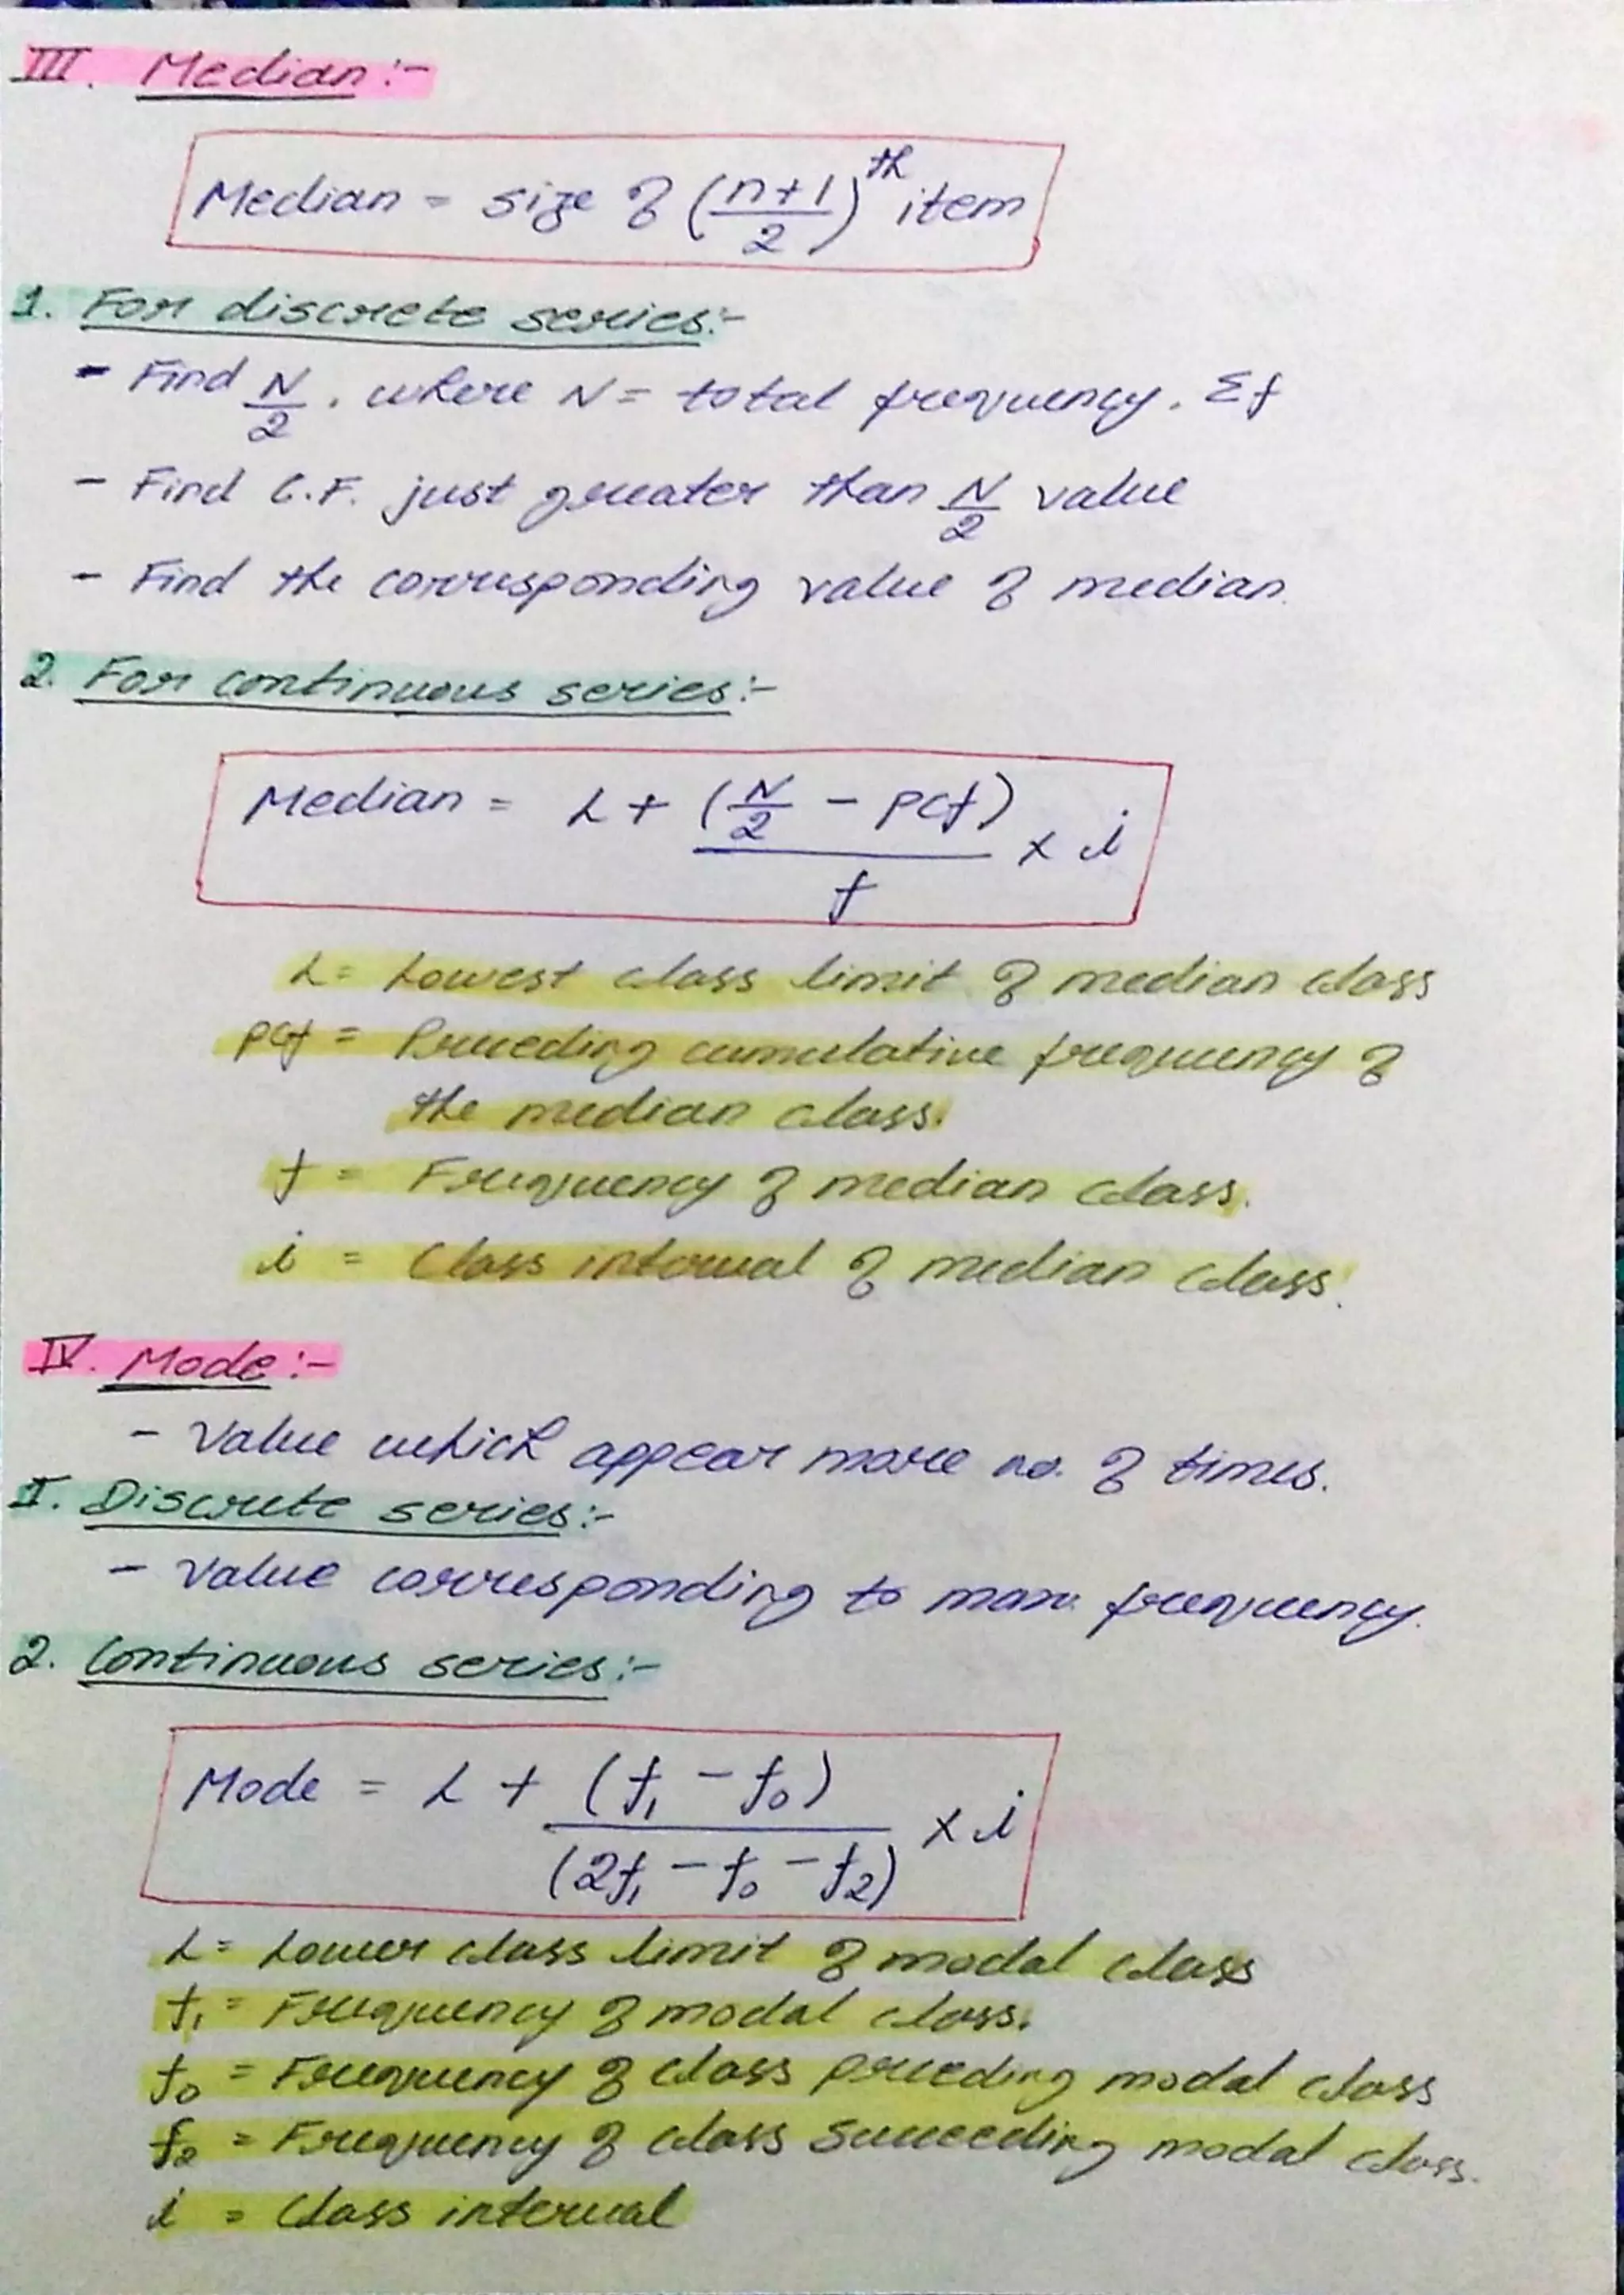 III. Median :-
Median = size of (n+1/2)th item
1. For discrete series:-
- Find N/2, where N = total frequency. Σf
- Find C.F. just greater than N/2 value
- Find the corresponding value of median.
2. For continuous series:-
Median = L + (N/2 - pcf)/f × i
L = Lowest class limit of median class
pcf = Preceding cumulative frequency of
the median class.
f = Frequency of median class.
i = Class interval of median class.
IV. Mode :-
- Value which appear more no. of times.
I. Discrete series:-
- Value corresponding to max. frequency.
2. Continuous series:-
Mode = L + (f₁ - f₀)/(2f₁ - f₀ - f₂) × i
L = Lower class limit of modal class
f₁ = Frequency of modal class.
f₀ = Frequency of class preceding modal class
f₂ = Frequency of class succeeding modal class.
i = Class interval